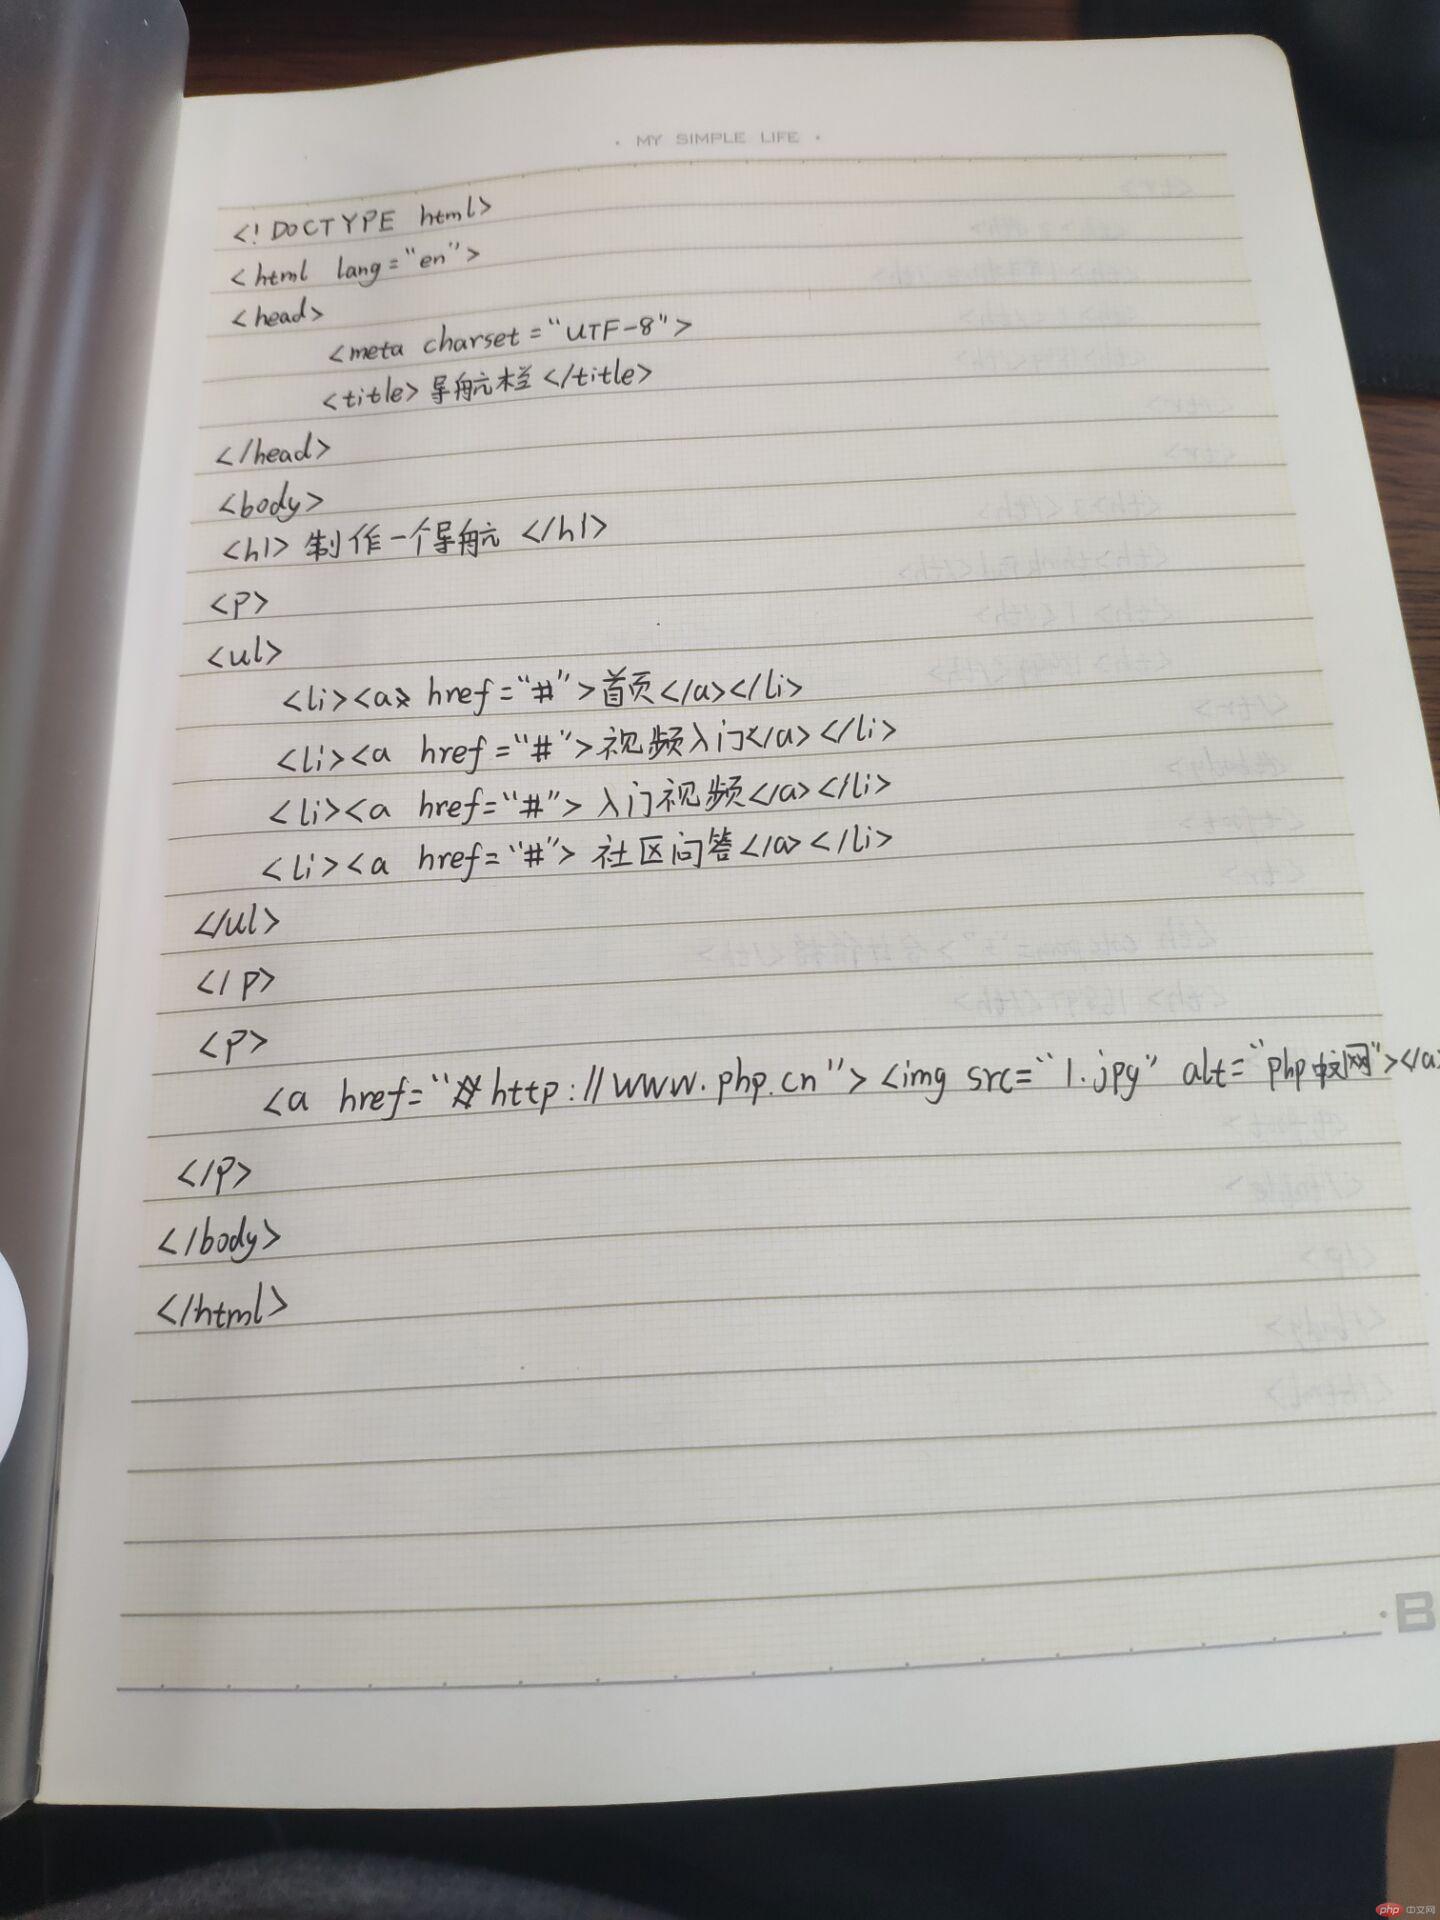 · MY SIMPLE LIFE ·
<!DOCTYPE html>
<html lang="en">
<head>
<meta charset="UTF-8">
<title>导航栏</title>
</head>
<body>
<h1>制作一个导航</h1>
<p>
<ul>
<li><a href="#">首页</a></li>
<li><a href="#">视频入门</a></li>
<li><a href="#">入门视频</a></li>
<li><a href="#">社区问答</a></li>
</ul>
</p>
<p>
<a href="http://www.php.cn"><img src="1.jpg" alt="php中文网"></a>
</p>
</body>
</html>
·B
php 中文网